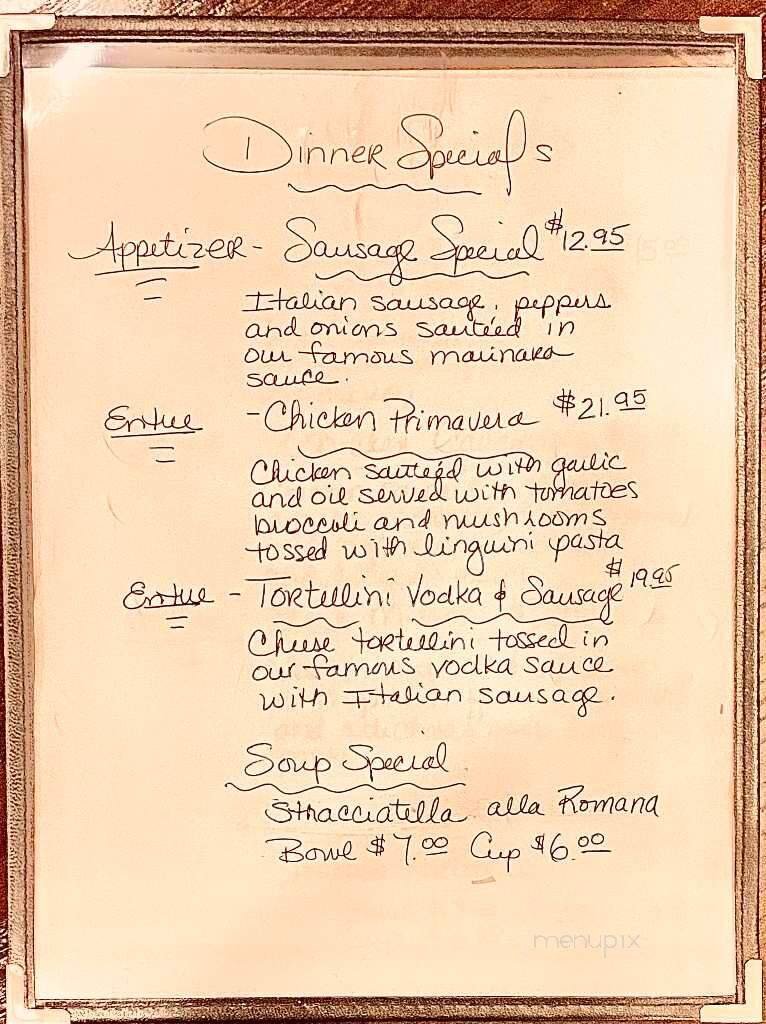 Dinner Specials
Appetizer - Sausage Special $12.95
Italian sausage, peppers
and onions sautéed in
our famous marinara
sauce.
Entree - Chicken Primavera $21.95
Chicken sautéed with garlic
and oil served with tomatoes
broccoli and mushrooms
tossed with linguini pasta
Entree - Tortellini Vodka & Sausage $19.95
Cheese tortellini tossed in
our famous vodka sauce
with Italian sausage.
Soup Special
Stracciatella alla Romana
Bowl $7.00 Cup $6.00
menupix